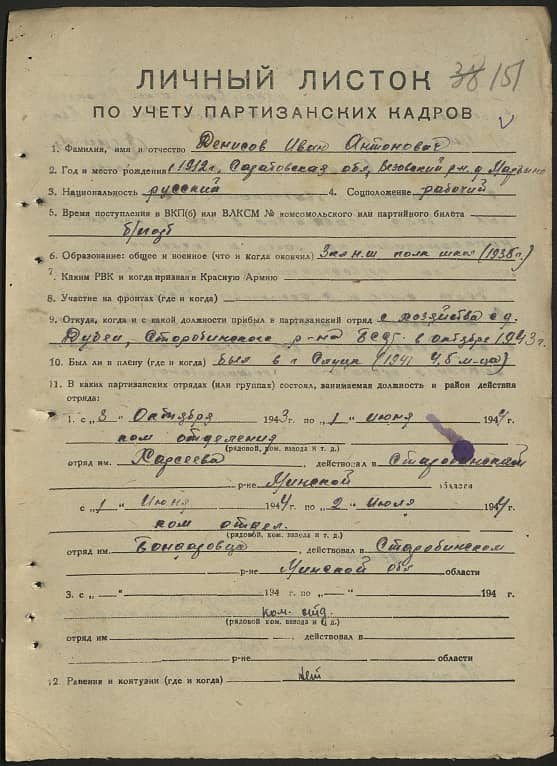 38 151
ЛИЧНЫЙ ЛИСТОК
ПО УЧЕТУ ПАРТИЗАНСКИХ КАДРОВ
1. Фамилия, имя и отчество Денисов Иван Антонович
2. Год и место рождения 1912 г., Саратовская обл, Вязовский р-н. д.
3. Национальность русский 4. Соцположение рабочий
5. Время поступления в ВКП(б) или ВЛКСМ № комсомольского или партийного билета
б/парт
6. Образование: общее и военное (что и когда окончил) полк школ (1936 г.)
7. Каким РВК и когда призван в Красную Армию
8. Участие на фронтах (где и когда)
9. Откуда, когда и с какой должности прибыл в партизанский отряд с хозяйства с д.
Дубеи, Старобинского р-на БССР в октябре 1943 г.
10. Был ли в плену (где и когда) Был в г Слуцк (1941 4,5 м-ца)
11. В каких партизанских отрядах (или группах) состоял, занимаемая должность и район действия
отряда:
1. с „3 " Октября 1943 г. по „1 " июня 1944 г.
ком отделения
(рядовой, ком. взвода и т. д.)
отряд им. , действовал в Старобинском
р-не Минской области
с „1 " Июня 1944 г. по „2 " Июля 1944 г.
ком отдел.
(рядовой, ком. взвода и т. д.)
отряд им. , действовал в Старобинском
р-не Минской обл области
3. с „ — " 194 г. по „ — " 194 г.
ком. отд.
(рядовой, ком. взвода и т. д.)
отряд им. действовал в
р-не области
12. Ранения и контузии (где и когда) нет